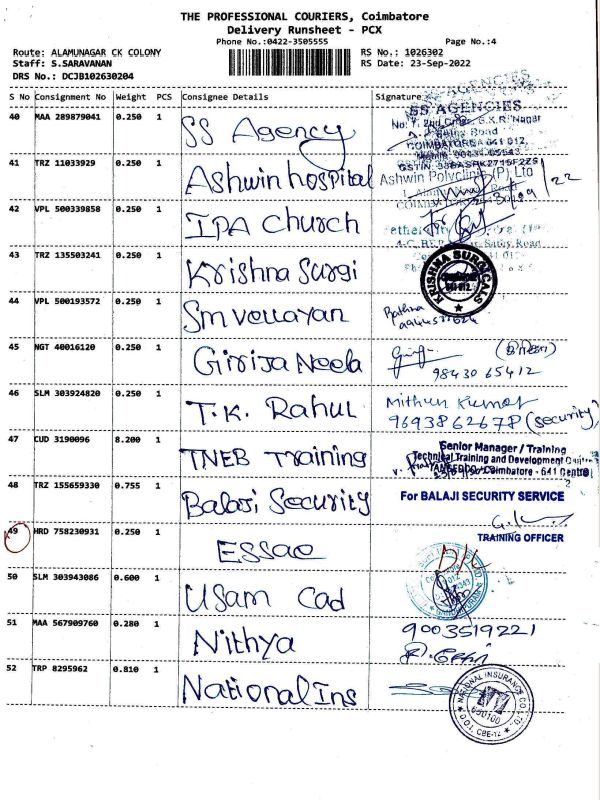 THE PROFESSIONAL COURIERS, Coimbatore
Delivery Runsheet - PCX
Phone No.:0422-3505555 Page No.:4
Route: ALAMUNAGAR CK COLONY RS No.: 1026302
Staff: S.SARAVANAN RS Date: 23-Sep-2022
DRS No.: DCJB102630204
S No Consignment No Weight PCS Consignee Details Signature
40 MAA 289879041 0.250 1 SS Agency
SS AGENCIES
COIMBATORE 641 012,
41 TRZ 11033929 0.250 1 Ashwin hospital
Ashwin Polyclinic (P) Ltd
42 VPL 500339858 0.250 1 IPA Church
43 TRZ 135503241 0.250 1 Krishna Surgi
KRISHNA SURGICALS
44 VPL 500193572 0.250 1 Sm vellayan
45 NGT 40016120 0.250 1 Girija Neela
98430 65412
46 SLM 303924820 0.250 1 T.K. Rahul
Mithun Kumar
9693862678 (security)
47 CUD 3190096 8.200 1 TNEB Training
Senior Manager / Training
Technical Training and Development Centre
TANGEDCO / Coimbatore - 641 012
48 TRZ 155659330 0.755 1 Balaji Security
For BALAJI SECURITY SERVICE
TRAINING OFFICER
49 HRD 758230931 0.250 1 ESSAE
50 SLM 303943086 0.600 1 Usam Cad
51 MAA 567909760 0.280 1 Nithya
9003519221
52 TRP 8295962 0.810 1 National Ins
NATIONAL INSURANCE CO. LTD.